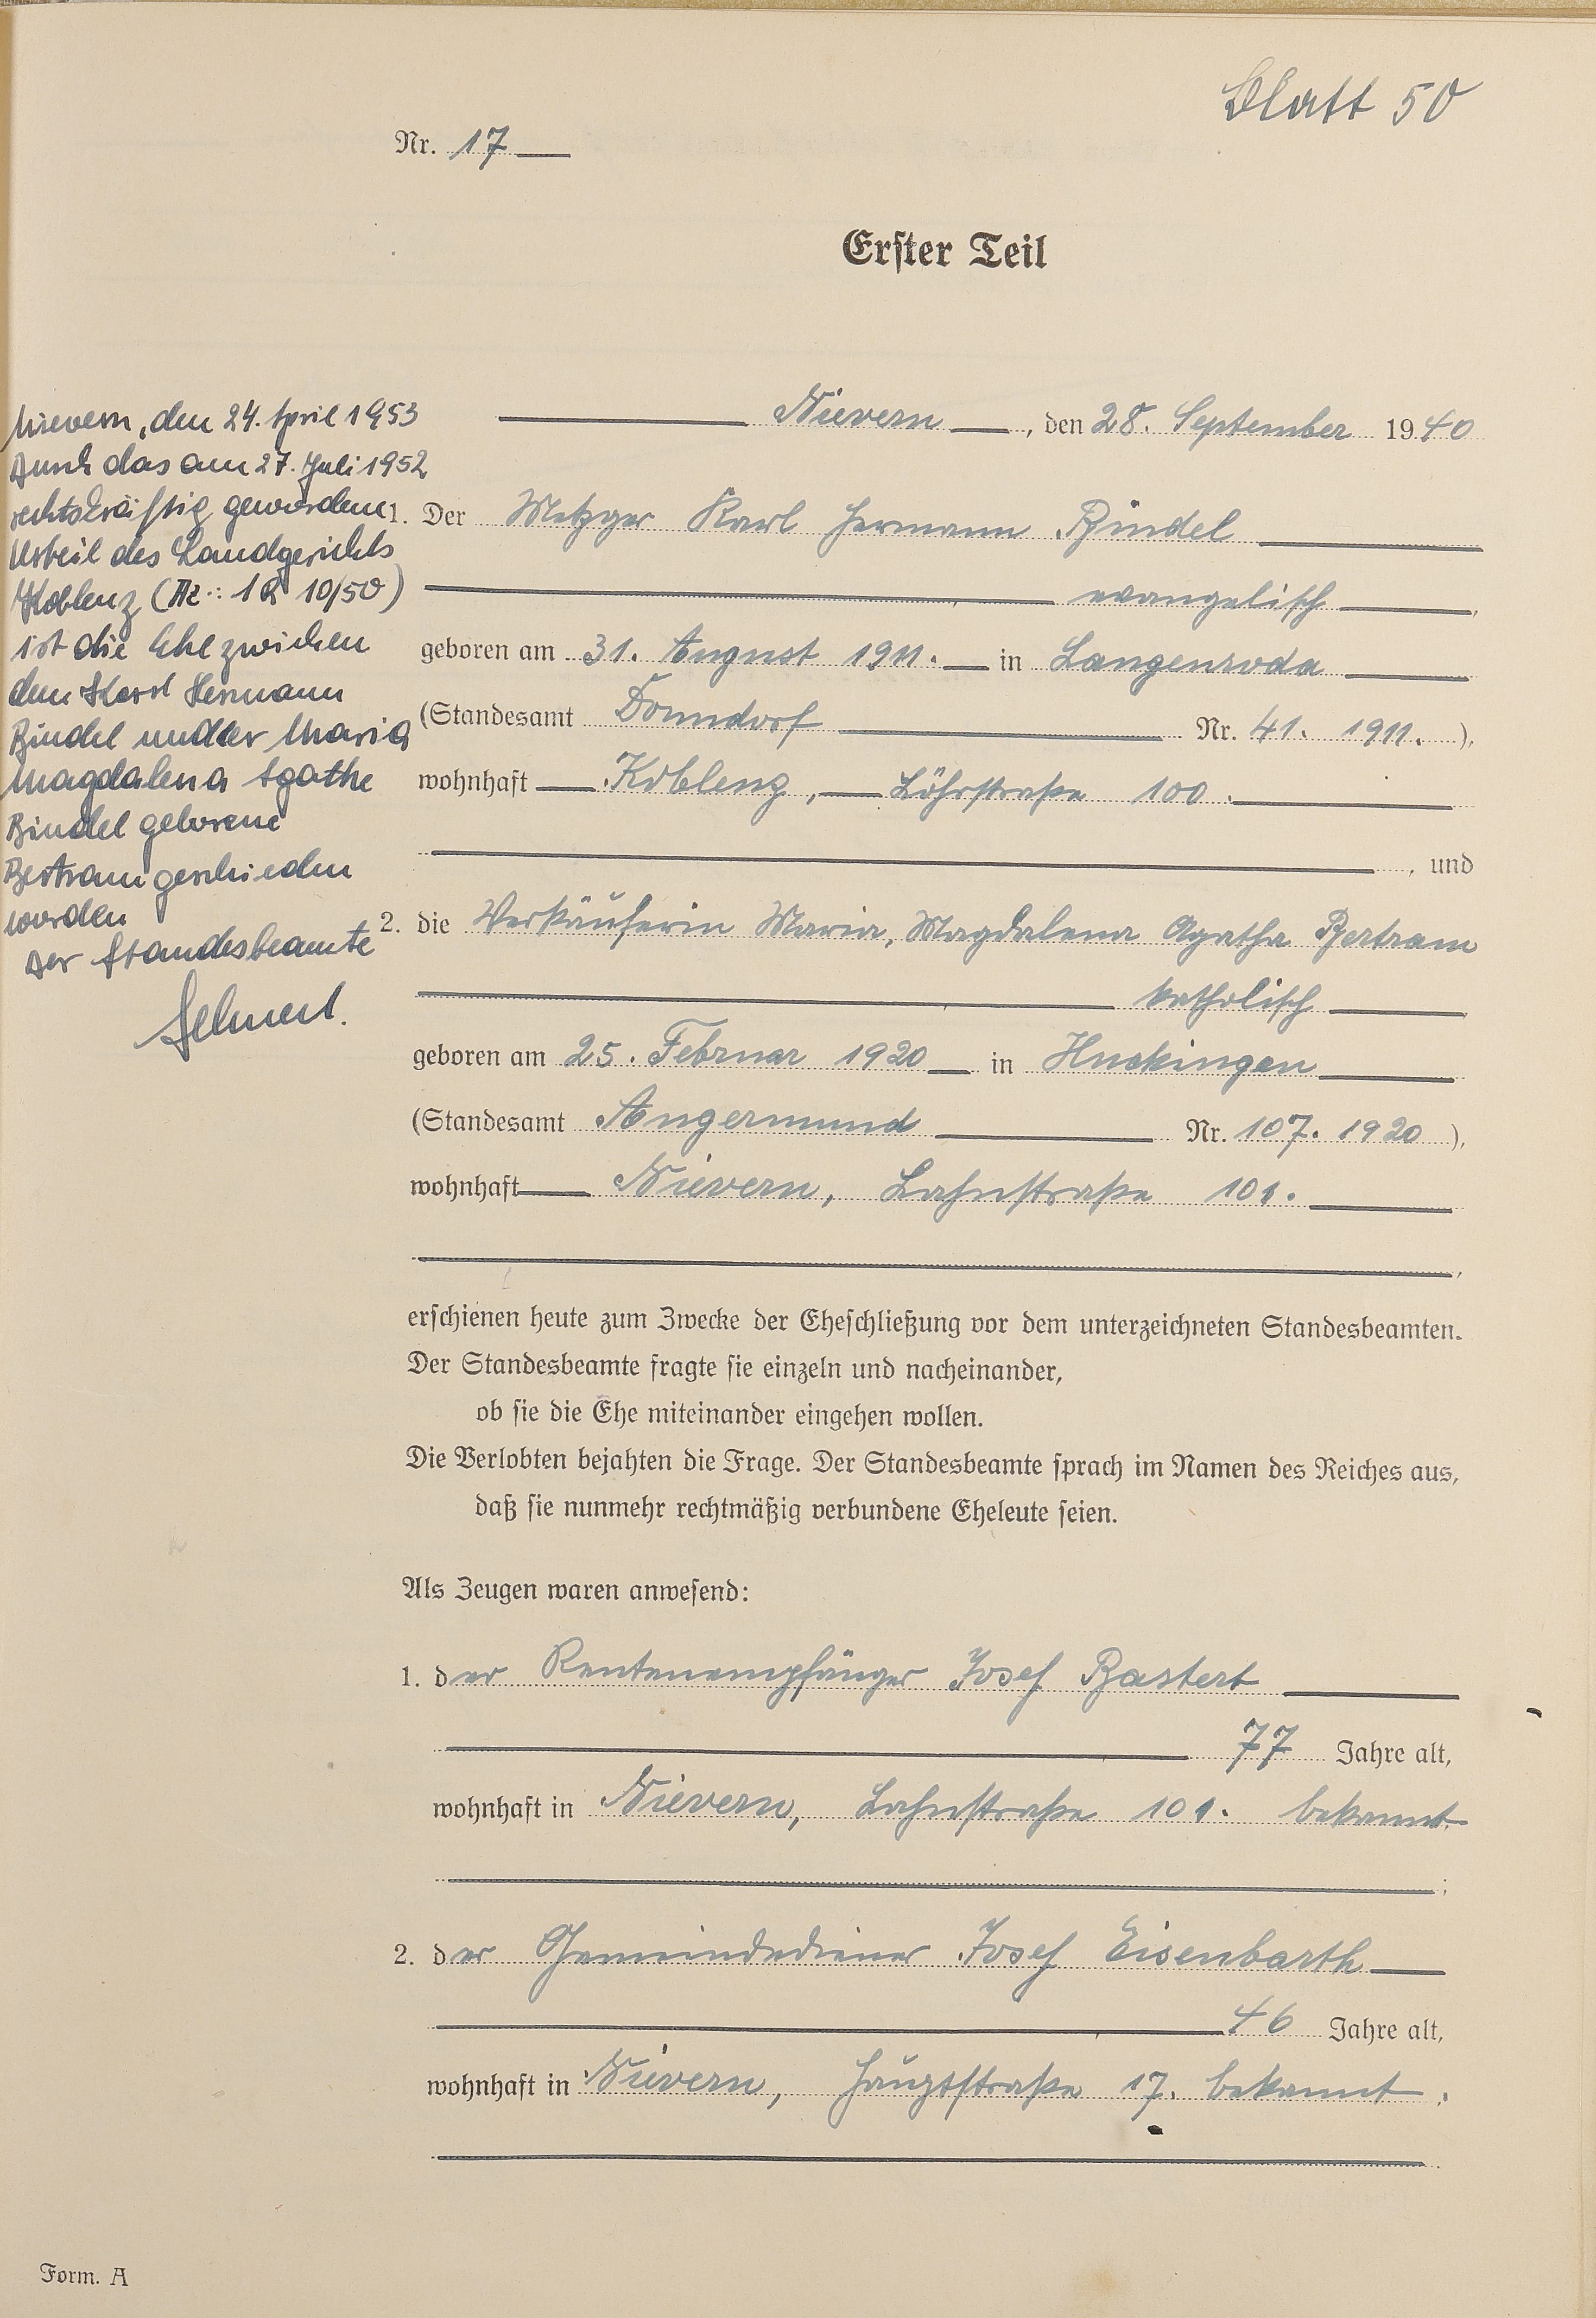 Blatt 50
Nr. 17
Erster Teil
Nievern, den 28. September 1940
1. Der Metzger Karl Hermann Bindel
evangelisch,
geboren am 31. August 1911. in Langenroda
(Standesamt Donndorf Nr. 41. 1911. ),
wohnhaft Koblenz, Löhrstraße 100.
, und
2. die Verkäuferin Maria, Magdalena Agatha Bertram
katholisch,
geboren am 25. Februar 1920 in Huckingen
(Standesamt Angermund Nr. 107. 1920 ),
wohnhaft Nievern, Lahnstraße 101.
,
erschienen heute zum Zwecke der Eheschließung vor dem unterzeichneten Standesbeamten.
Der Standesbeamte fragte sie einzeln und nacheinander,
ob sie die Ehe miteinander eingehen wollen.
Die Verlobten bejahten die Frage. Der Standesbeamte sprach im Namen des Reiches aus,
daß sie nunmehr rechtmäßig verbundene Eheleute seien.
Als Zeugen waren anwesend:
1. der Rentenempfänger Josef Bastert
77 Jahre alt,
wohnhaft in Nievern, Lahnstraße 101. bekannt
;
2. der Gemeindediener Josef Eisenbarth
46 Jahre alt,
wohnhaft in Nievern, Hauptstraße 17. bekannt.
Nievern, den 24. April 1953
Durch das am 27. Juli 1952
rechtskräftig gewordene
Urteil des Landgerichts
Koblenz (Az.: 1 R 10/50)
ist die Ehe zwischen
dem Karl Hermann
Bindel und der Maria
Magdalena Agathe
Bindel geborene
Bertram geschieden
worden
Der Standesbeamte
Form. A